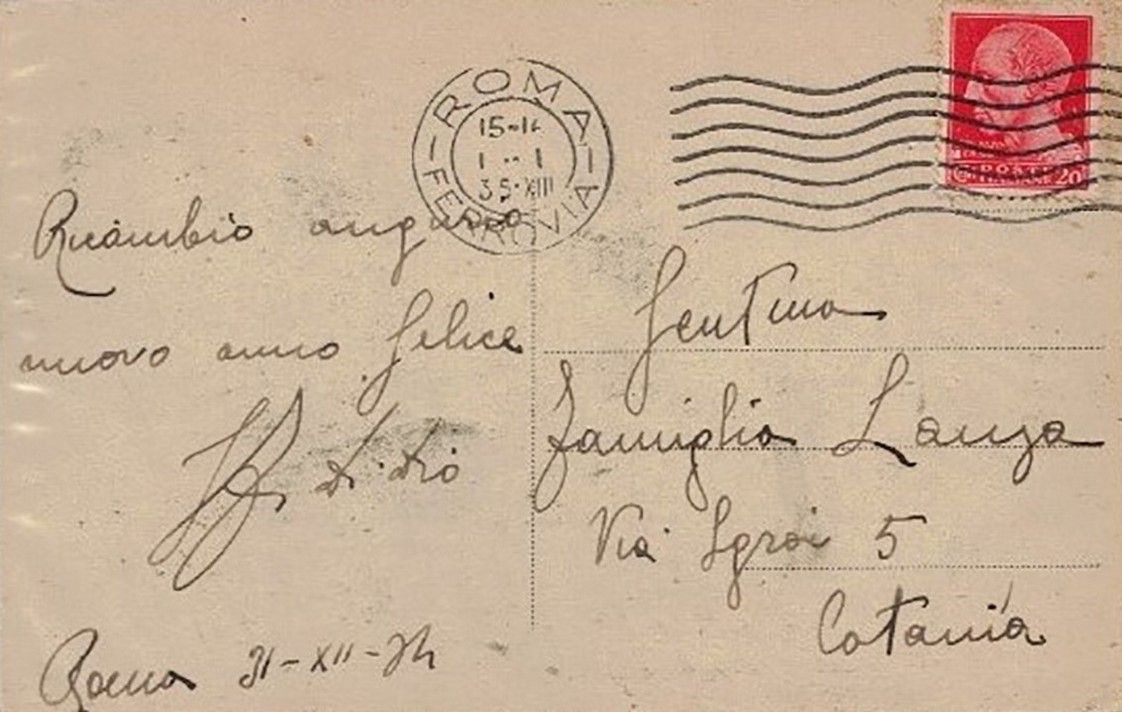 ROMA
15-1
1 - 1
35-XIII
FERROVIA
20
Ricambio auguro
nuovo anno felice
Di Dio
Roma 31-XII-34
Gent/ma
Famiglia Lanza
Via Sgroi 5
Catania